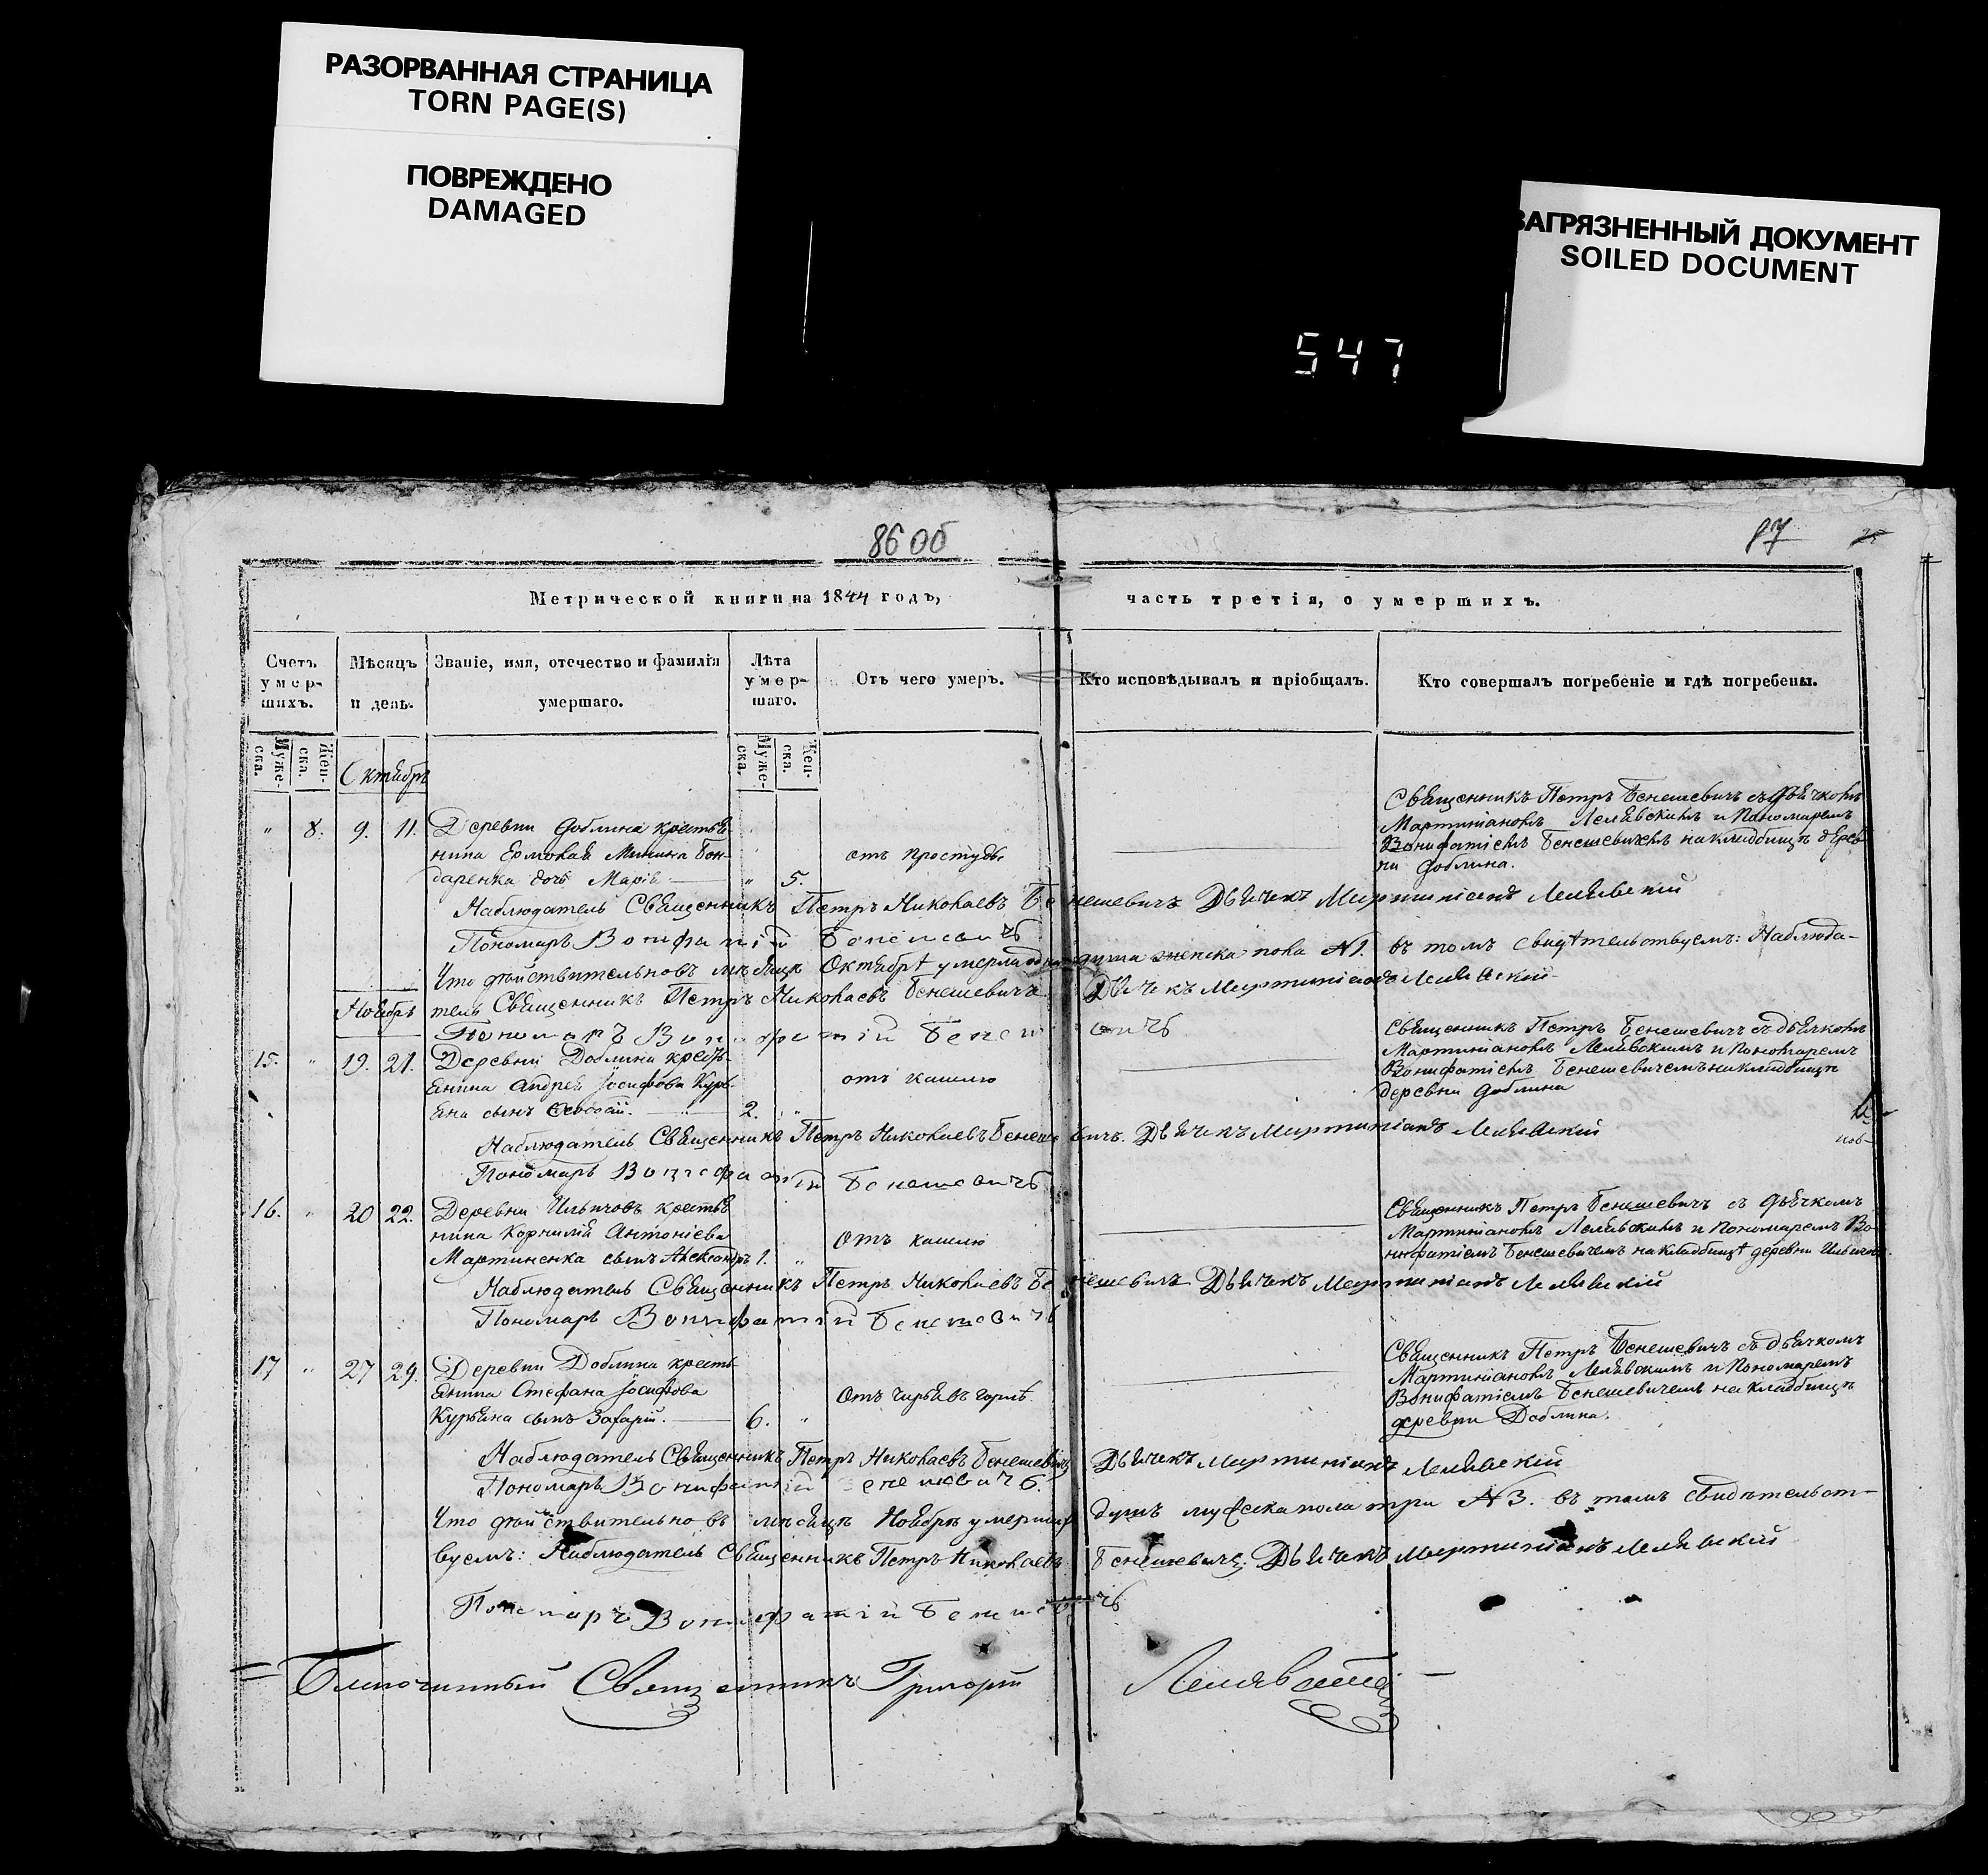 РАЗОРВАННАЯ СТРАНИЦА
TORN PAGE(S)
ПОВРЕЖДЕНО
DAMAGED
ЗАГРЯЗНЕННЫЙ ДОКУМЕНТ
SOILED DOCUMENT
547
86 об
87
Метрической книги на 1844 годъ, часть третія, о умершихъ.
Счетъ умер-шихъ.
Мѣсяцъ и день.
Званіе, имя, отечество и фамилія умершаго.
Лѣта умер-шаго.
Отъ чего умеръ.
Кто исповѣдывалъ и пріобщалъ.
Кто совершалъ погребеніе и гдѣ погребены.
Муже-ска. Жен-ска. Муже-ска. Жен-ска.
Октябрь
Священникъ Петръ Бенешевичъ съ дьячкомъ
" 8. 9. 11. Деревни Доблина крестья Мартиніаномъ Лелявскимъ и Пономаремъ
нина Ермолая Минина Бон- отъ простуды Вонифатіемъ Бенешевичемъ на кладбищѣ дерев-
даренка дочь Марія " 5. ни Доблина.
Наблюдатель Священникъ Петръ Николаевъ Бенешевичъ Дьячекъ Мартиніанъ Лелявскій
Пономарь Вонифатій Бенешевичъ
Что дѣйствительно въ мѣсяцѣ Октябрѣ умерла одна душа женска пола №1. въ томъ свидѣтельствуемъ: Наблюда-
Ноябрь тель Священникъ Петръ Николаевъ Бенешевичъ Дьячекъ Мартиніанъ Лелявскій
Пономарь Вонифатій Бенешевичъ
Священникъ Петръ Бенешевичъ съ дьячкомъ
15. " 19. 21. Деревни Доблина кресть- Мартиніаномъ Лелявскимъ и Пономаремъ
янина Андрея Іосифова Курь- отъ кашлю Вонифатіемъ Бенешевичемъ на кладбищѣ
яна сынъ 2. " деревни Доблина
Наблюдатель Священникъ Петръ Николаевъ Бенешевичъ. Дьячекъ Мартиніанъ Лелявскій
Пономарь Вонифатій Бенешевичъ
16. " 20 22. Деревни Ильичовъ крестья Священникъ Петръ Бенешевичъ съ дьячкомъ
нина Корнилія Антоніева отъ кашлю Мартиніаномъ Лелявскимъ и Пономаремъ Во-
Мартиненка сынъ Александръ 1. " нифатіемъ Бенешевичемъ на кладбищѣ деревни
Наблюдатель Священникъ Петръ Николаевъ Бенешевичъ Дьячекъ Мартиніанъ Лелявскій
Пономарь Вонифатій Бенешевичъ
Священникъ Петръ Бенешевичъ съ дьячкомъ
17 " 27 29. Деревни Доблина кресть- Мартиніаномъ Лелявскимъ и Пономаремъ
янина Стефана Іосифова Отъ чирья въ горлѣ. Вонифатіемъ Бенешевичемъ на кладбищѣ
Курьяна сынъ Захарій. 6. " деревни Доблина.
Наблюдатель Священникъ Петръ Николаевъ Бенешевичъ Дьячекъ Мартиніанъ Лелявскій
Пономарь Вонифатій Бенешевичъ.
Что дѣйствительно въ мѣсяцѣ Ноябрѣ умершихъ душъ мужеска пола три №3. въ томъ свидѣтельст-
вуемъ: Наблюдатель Священникъ Петръ Николаевъ Бенешевичъ. Дьячекъ Мартиніанъ Лелявскій
Пономарь Вонифатій Бенешевичъ
Благочинный Священникъ Григорій Лелявскій